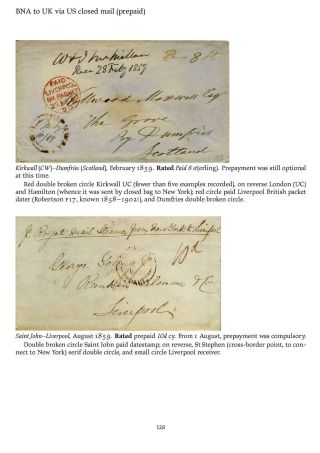 BNA to UK via US closed mail (prepaid)
W & J McMillan
Decr 28 Feby 1859
Paid 8 st
PAID
LIVERPOOL
BR. PACKET
Wellwood Maxwell Esq
The Grove
By Dumfries
Scotland
Kirkwall (CW)–Dumfries (Scotland), February 1859. Rated Paid 8 st(erling). Prepayment was still optional
at this time.
Red double broken circle Kirkwall UC (fewer than five examples recorded), on reverse London (UC)
and Hamilton (whence it was sent by closed bag to New York); red circle paid Liverpool British packet
dater (Robertson F17, known 1858–1902!), and Dumfries double broken circle.
p Royal Mail Steamer from New York to Liverpool
10d
PAID
Liverpool
Saint John–Liverpool, August 1859. Rated prepaid 10d cy. From 1 August, prepayment was compulsory.
Double broken circle Saint John paid datestamp; on reverse, St Stephen (cross-border point, to con-
nect to New York) serif double circle, and small circle Liverpool receiver.
126